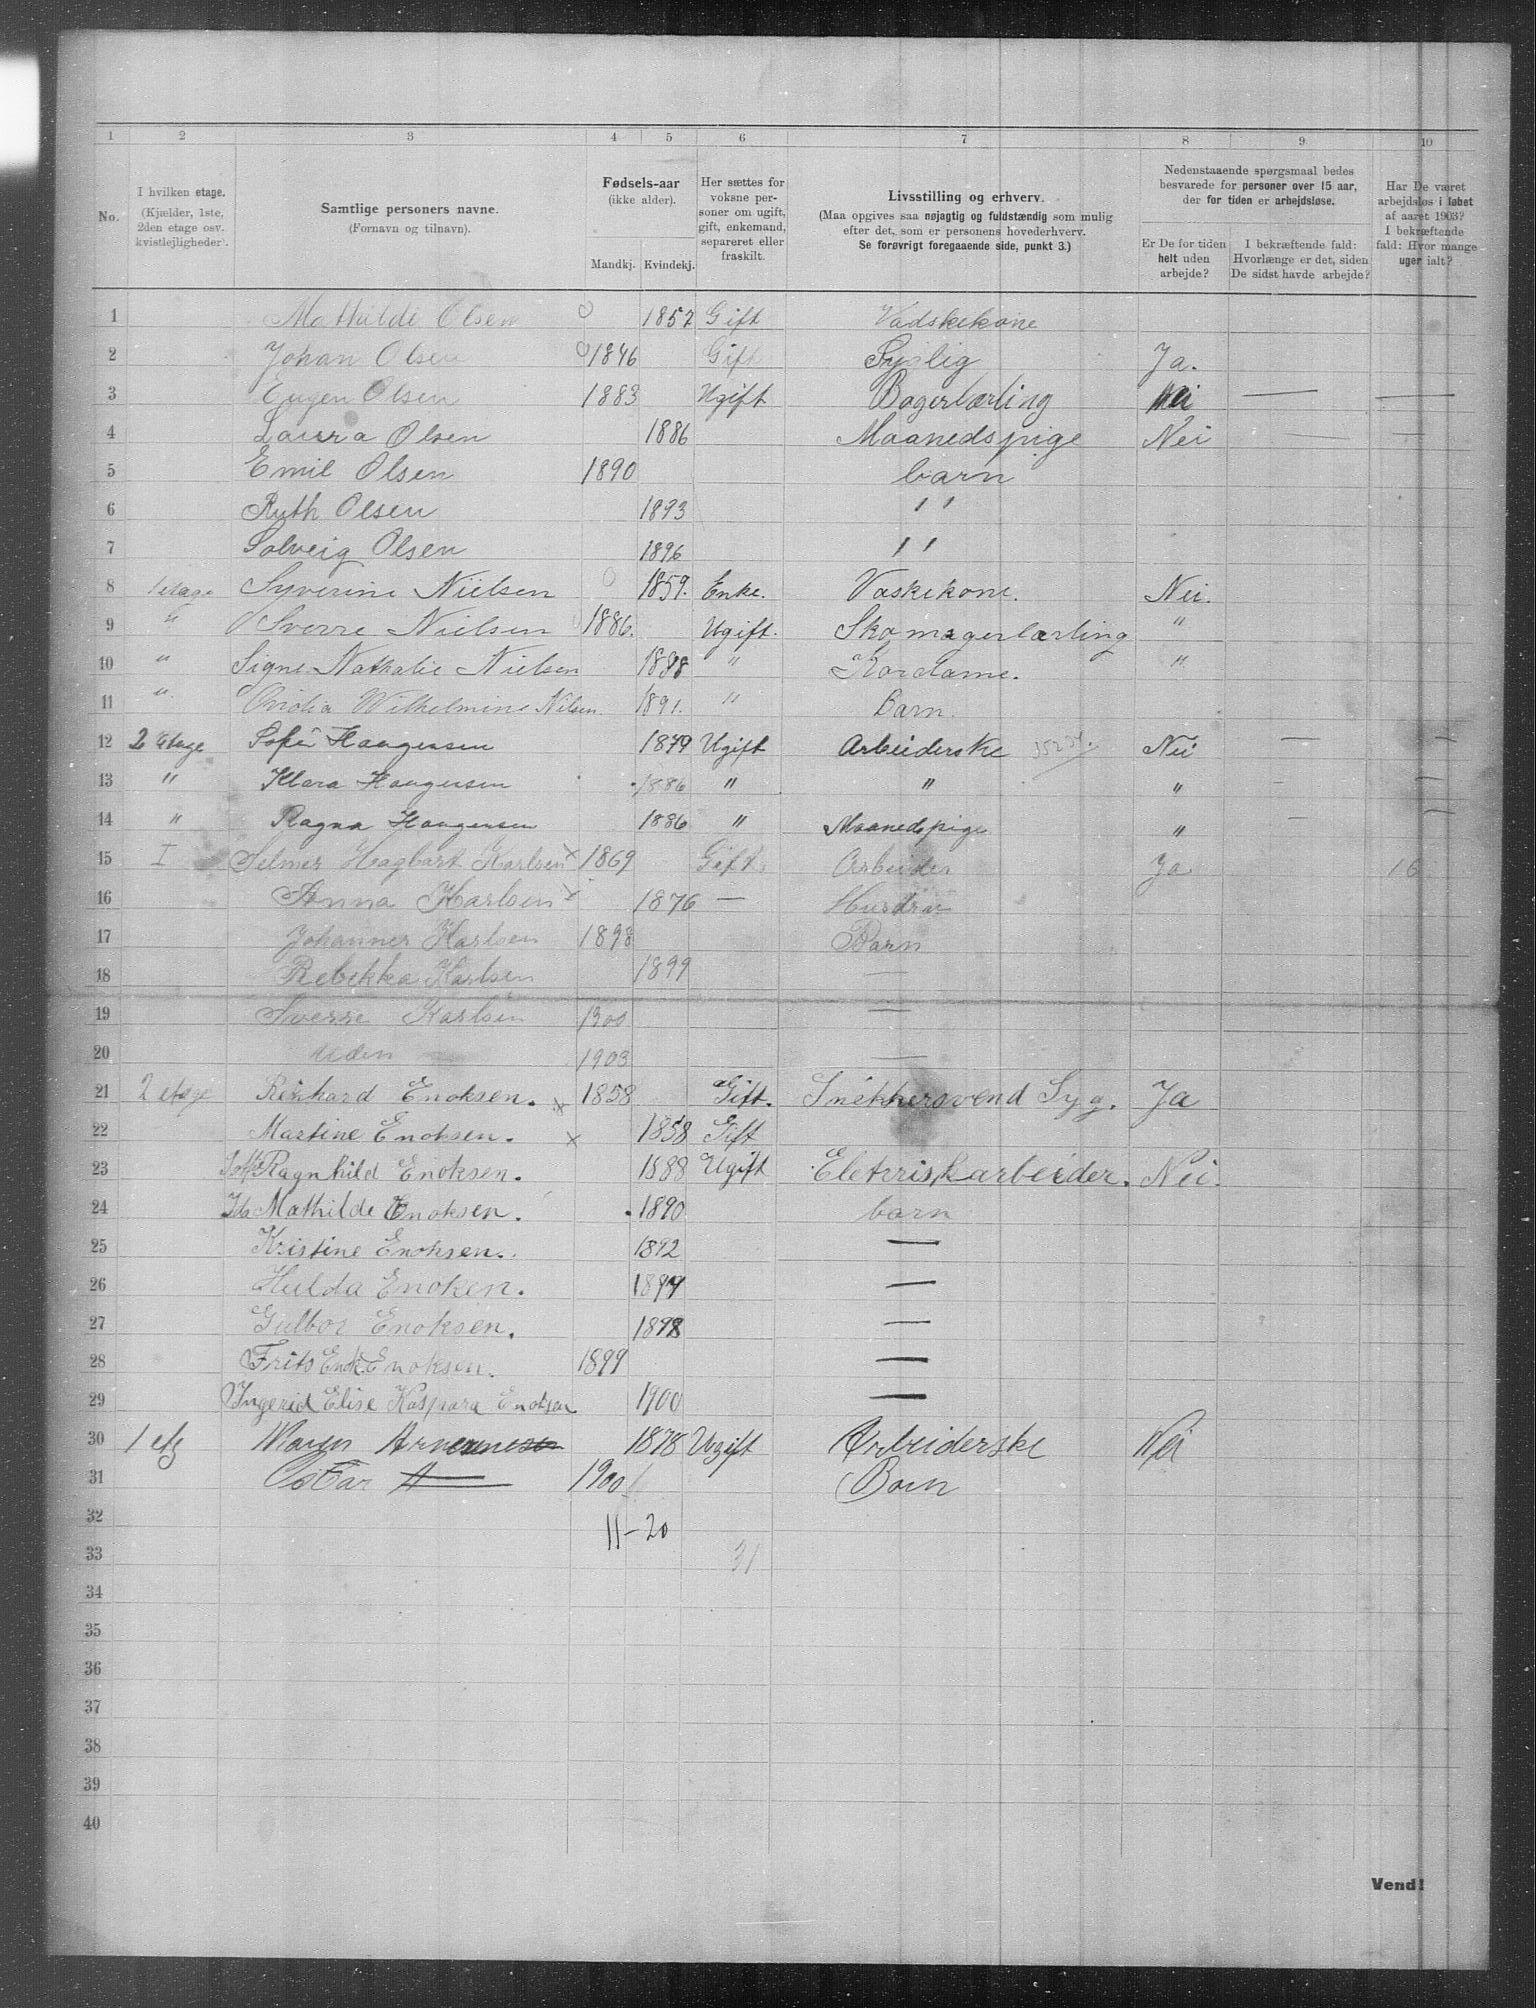 1 2 3 4 5 6 7 8 9 10
No.
I hvilken etage.
(Kjælder, 1ste,
2den etage osv.
kvistlejligheder).
Samtlige personers navne.
(Fornavn og tilnavn).
Fødsels-aar
(ikke alder).
Mandkj. Kvindekj.
Her sættes for
voksne per-
soner om ugift,
gift, enkemand,
separeret eller
fraskilt.
Livsstilling og erhverv.
(Maa opgives saa nøjagtig og fuldstændig som mulig
efter det, som er personens hovederhverv.
Se forøvrigt foregaaende side, punkt 3.)
Nedenstaaende spørgsmaal bedes
besvarede for personer over 15 aar,
der for tiden er arbejdsløse.
Er De for tiden
helt uden
arbejde?
I bekræftende fald:
Hvorlænge er det, siden
De sidst havde arbejde?
Har De været
arbejdsløs i løbet
af aaret 1903?
I bekræftende
fald: Hvor mange
uger ialt?
1 Mathilde Olsen 1857 Gift Vadskekone
2 Johan Olsen 1846 Gift Syglig Ja.
3 Eugen Olsen 1883 Ugift Bagerlærling Nei — —
4 Laura Olsen 1886 Maanedspige Nei — —
5 Emil Olsen 1890 barn
6 Ruth Olsen 1893 "
7 Solveig Olsen 1896 "
8 1 etage Syverine Nielsen 1859. Enke. Vaskekone. Nei.
9 " Sverre Nielsen 1886. Ugift. Skomagerlærling "
10 " Signe Nathalie Nielsen 1888 " Kordame. "
11 " Ovidia Wilhelmine Nilsen 1891. " Barn.
12 2 Etage Sofie Haagensen 1879 Ugift Arbeiderske Nei — —
13 " Klara Haagensen 1886 " " " - —
14 " Ragna Haagensen 1886 " Maanedspige " — —
15 I Selmer Hagbart Karlsen x 1869 Gift. Arbeider Ja 16
16 Anna Karlsen x 1876 — Husdru
17 Johannes Karlsen 1898 Barn
18 Rebekka Karlsen 1899 —
19 Sverre Karlsen 1900 —
20 Uden — 1903 —
21 2 etage Reinhard Enoksen. x 1858 Gift. Snekkersvend Syg. Ja
22 Martine Enoksen. x 1858 Gift
23 Ragnhild Enoksen. 1888 Ugift Eletrriskarbeider. Nei.
24 Ida Mathilde Enoksen. 1890 barn
25 Kristine Enoksen. 1892 —
26 Hulda Enoken. 1894 —
27 Gulbor Enoksen. 1898 —
28 Frits Enok Enoksen. 1899 —
29 Ingerid Elise Kaspara Enoksen 1900 —
30 1 etg 1878 Ugift Arbeiderske Nei
31 Oskar A— 1900 Barn
32 11-20
33 31
34
35
36
37
38
39
40
Vend!